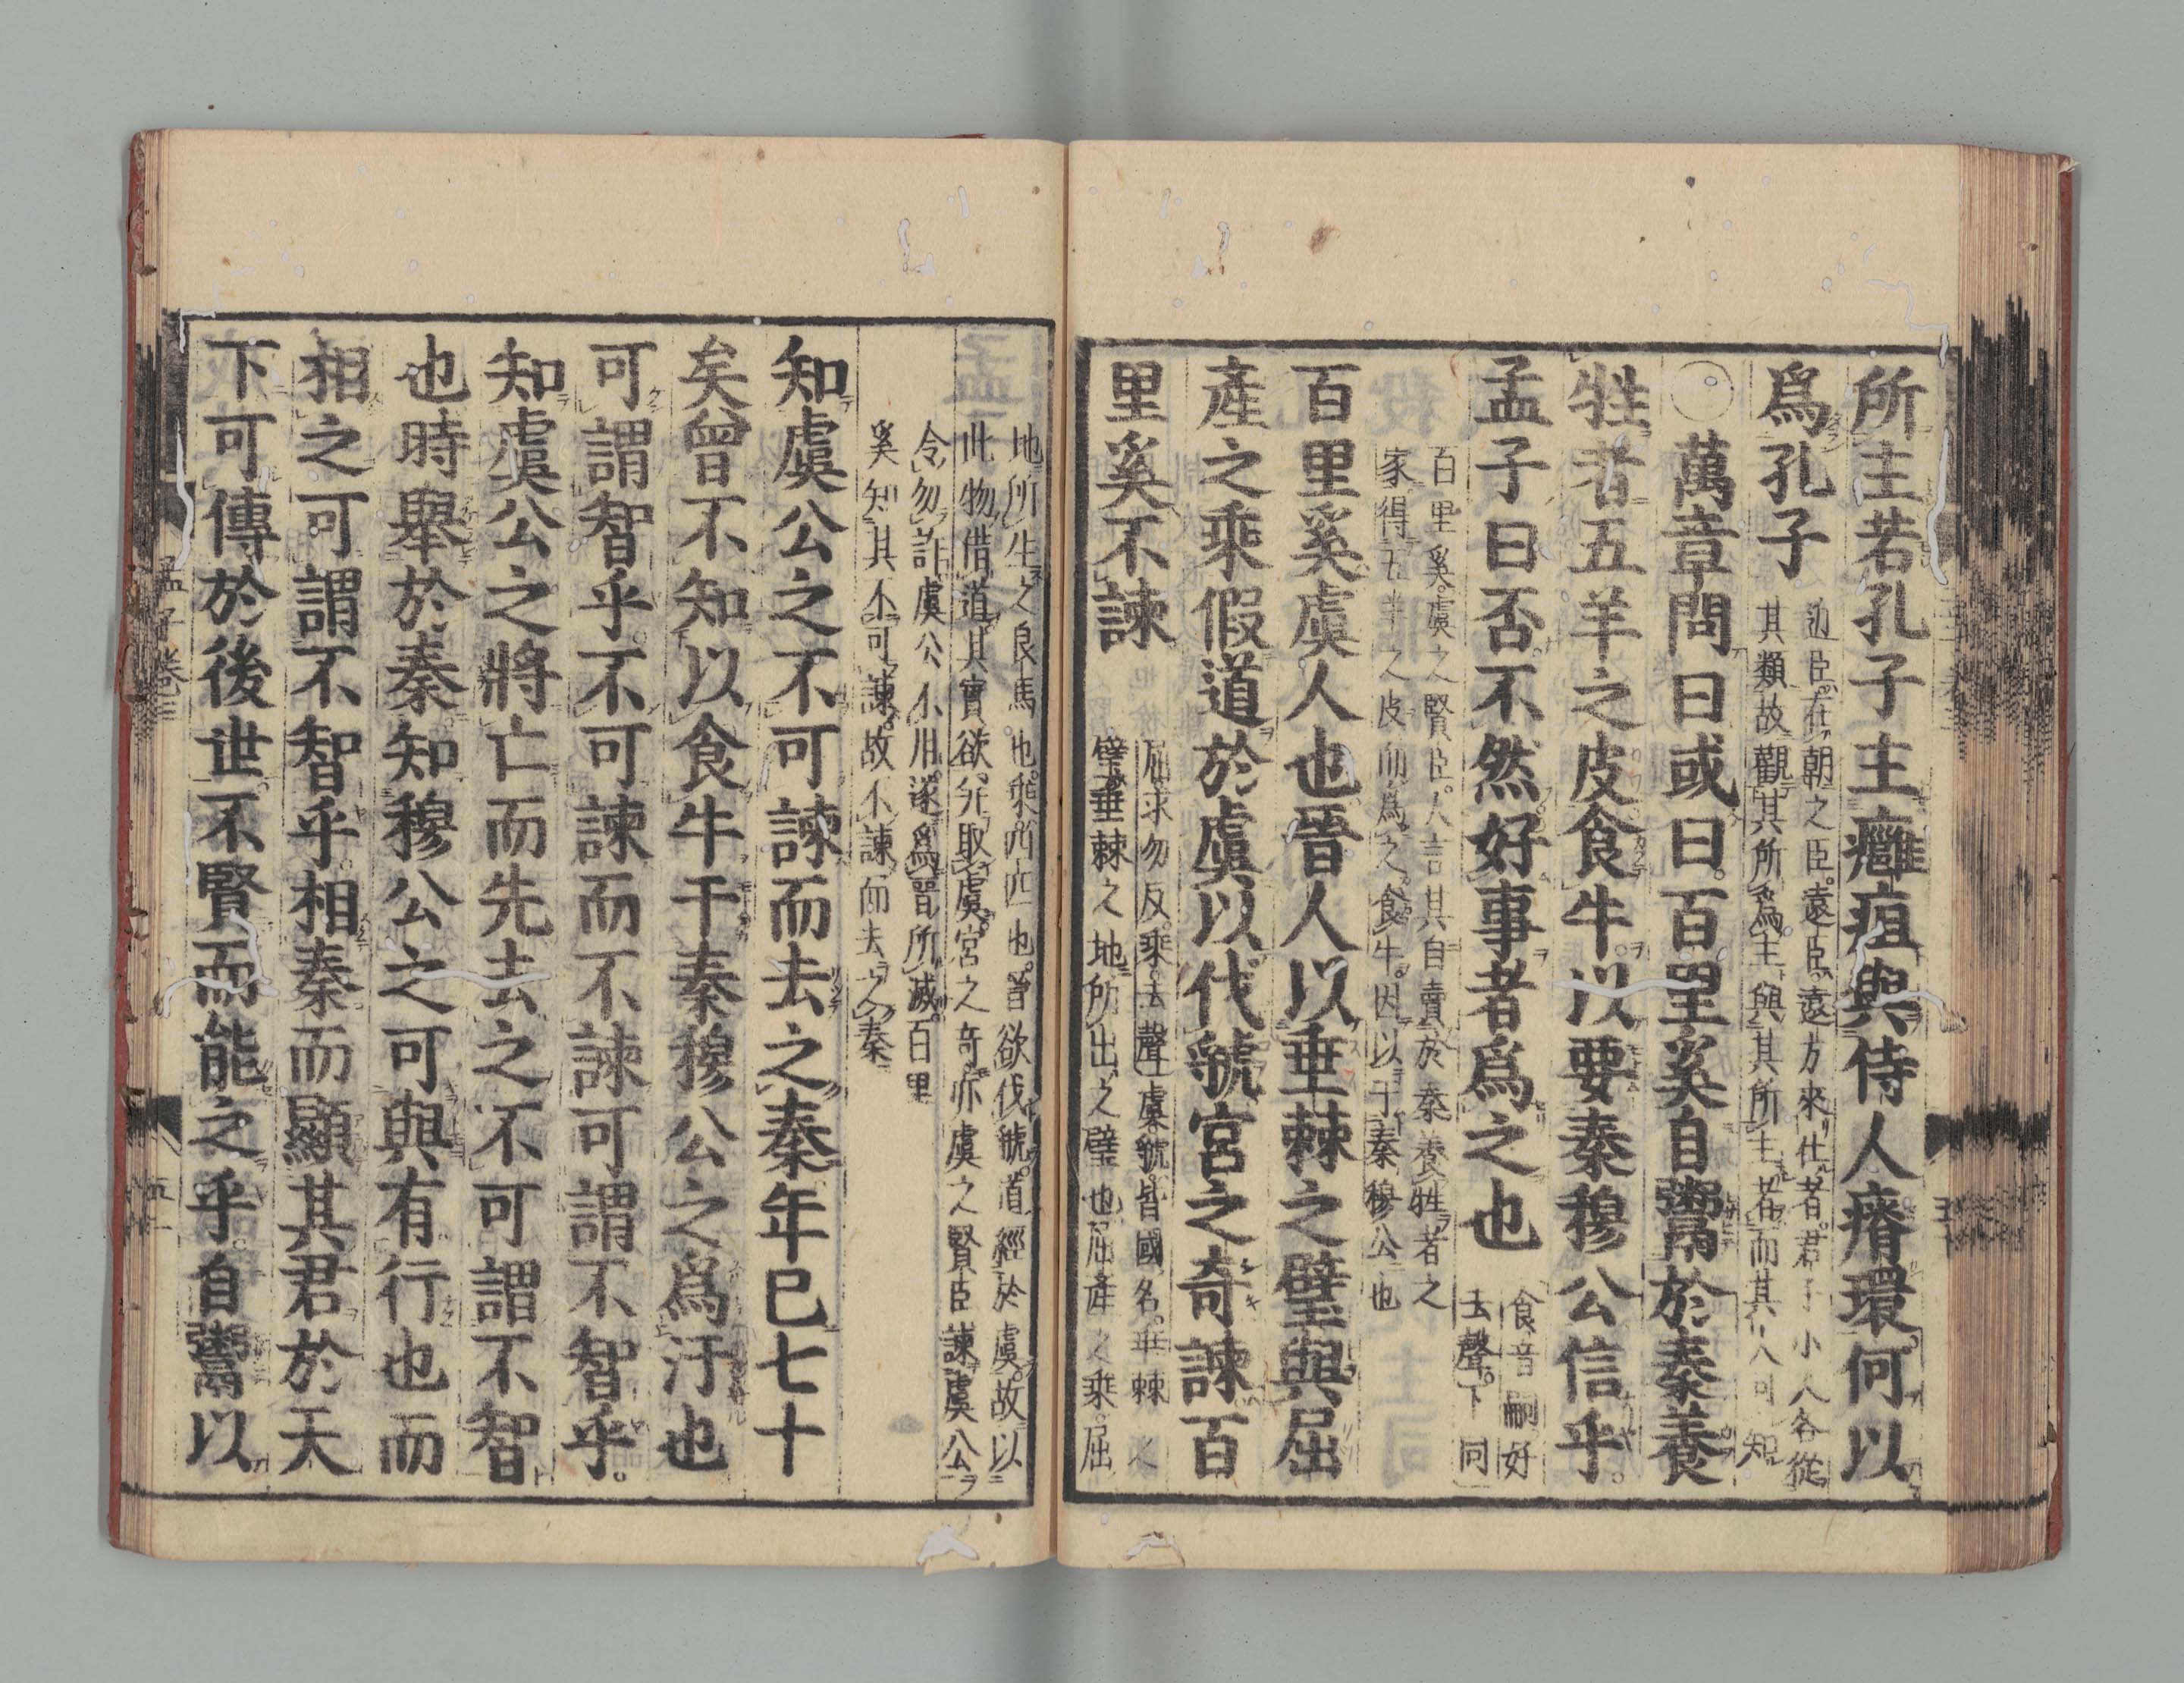 所主若孔子主癰疽與侍人瘠環何以
爲孔子
近臣在朝之臣遠臣遠方來仕者君子小人各從
其類故觀其所爲主與其所主者而其人可知
○萬章問曰或曰百里奚自鬻於秦養
牲者五羊之皮食牛以要秦穆公信乎
孟子曰否不然好事者爲之也
食音嗣好
去聲下同
百里奚虞之賢臣人言其自賣於秦養牲者之
家得五羊之皮而爲之食牛因以干秦穆公也
百里奚虞人也晉人以垂棘之璧與屈
產之乘假道於虞以伐虢宮之奇諫百
里奚不諫
屈求勿反乘去聲虞虢皆國名垂棘之
璧垂棘之地所出之璧也屈產之乘屈
地所生之良馬也乘四匹也晉欲伐虢道經於虞故以
此物借道其實欲并取虞宮之奇亦虞之賢臣諫虞公
令勿許虞公不用遂爲晉所滅百里
奚知其不可諫故不諫而去之秦
知虞公之不可諫而去之秦年已七十
矣曾不知以食牛干秦穆公之爲汙也
可謂智乎不可諫而不諫可謂不智乎
知虞公之將亡而先去之不可謂不智
也時舉於秦知穆公之可與有行也而
相之可謂不智乎相秦而顯其君於天
下可傳於後世不賢而能之乎自鬻以
孟子卷三